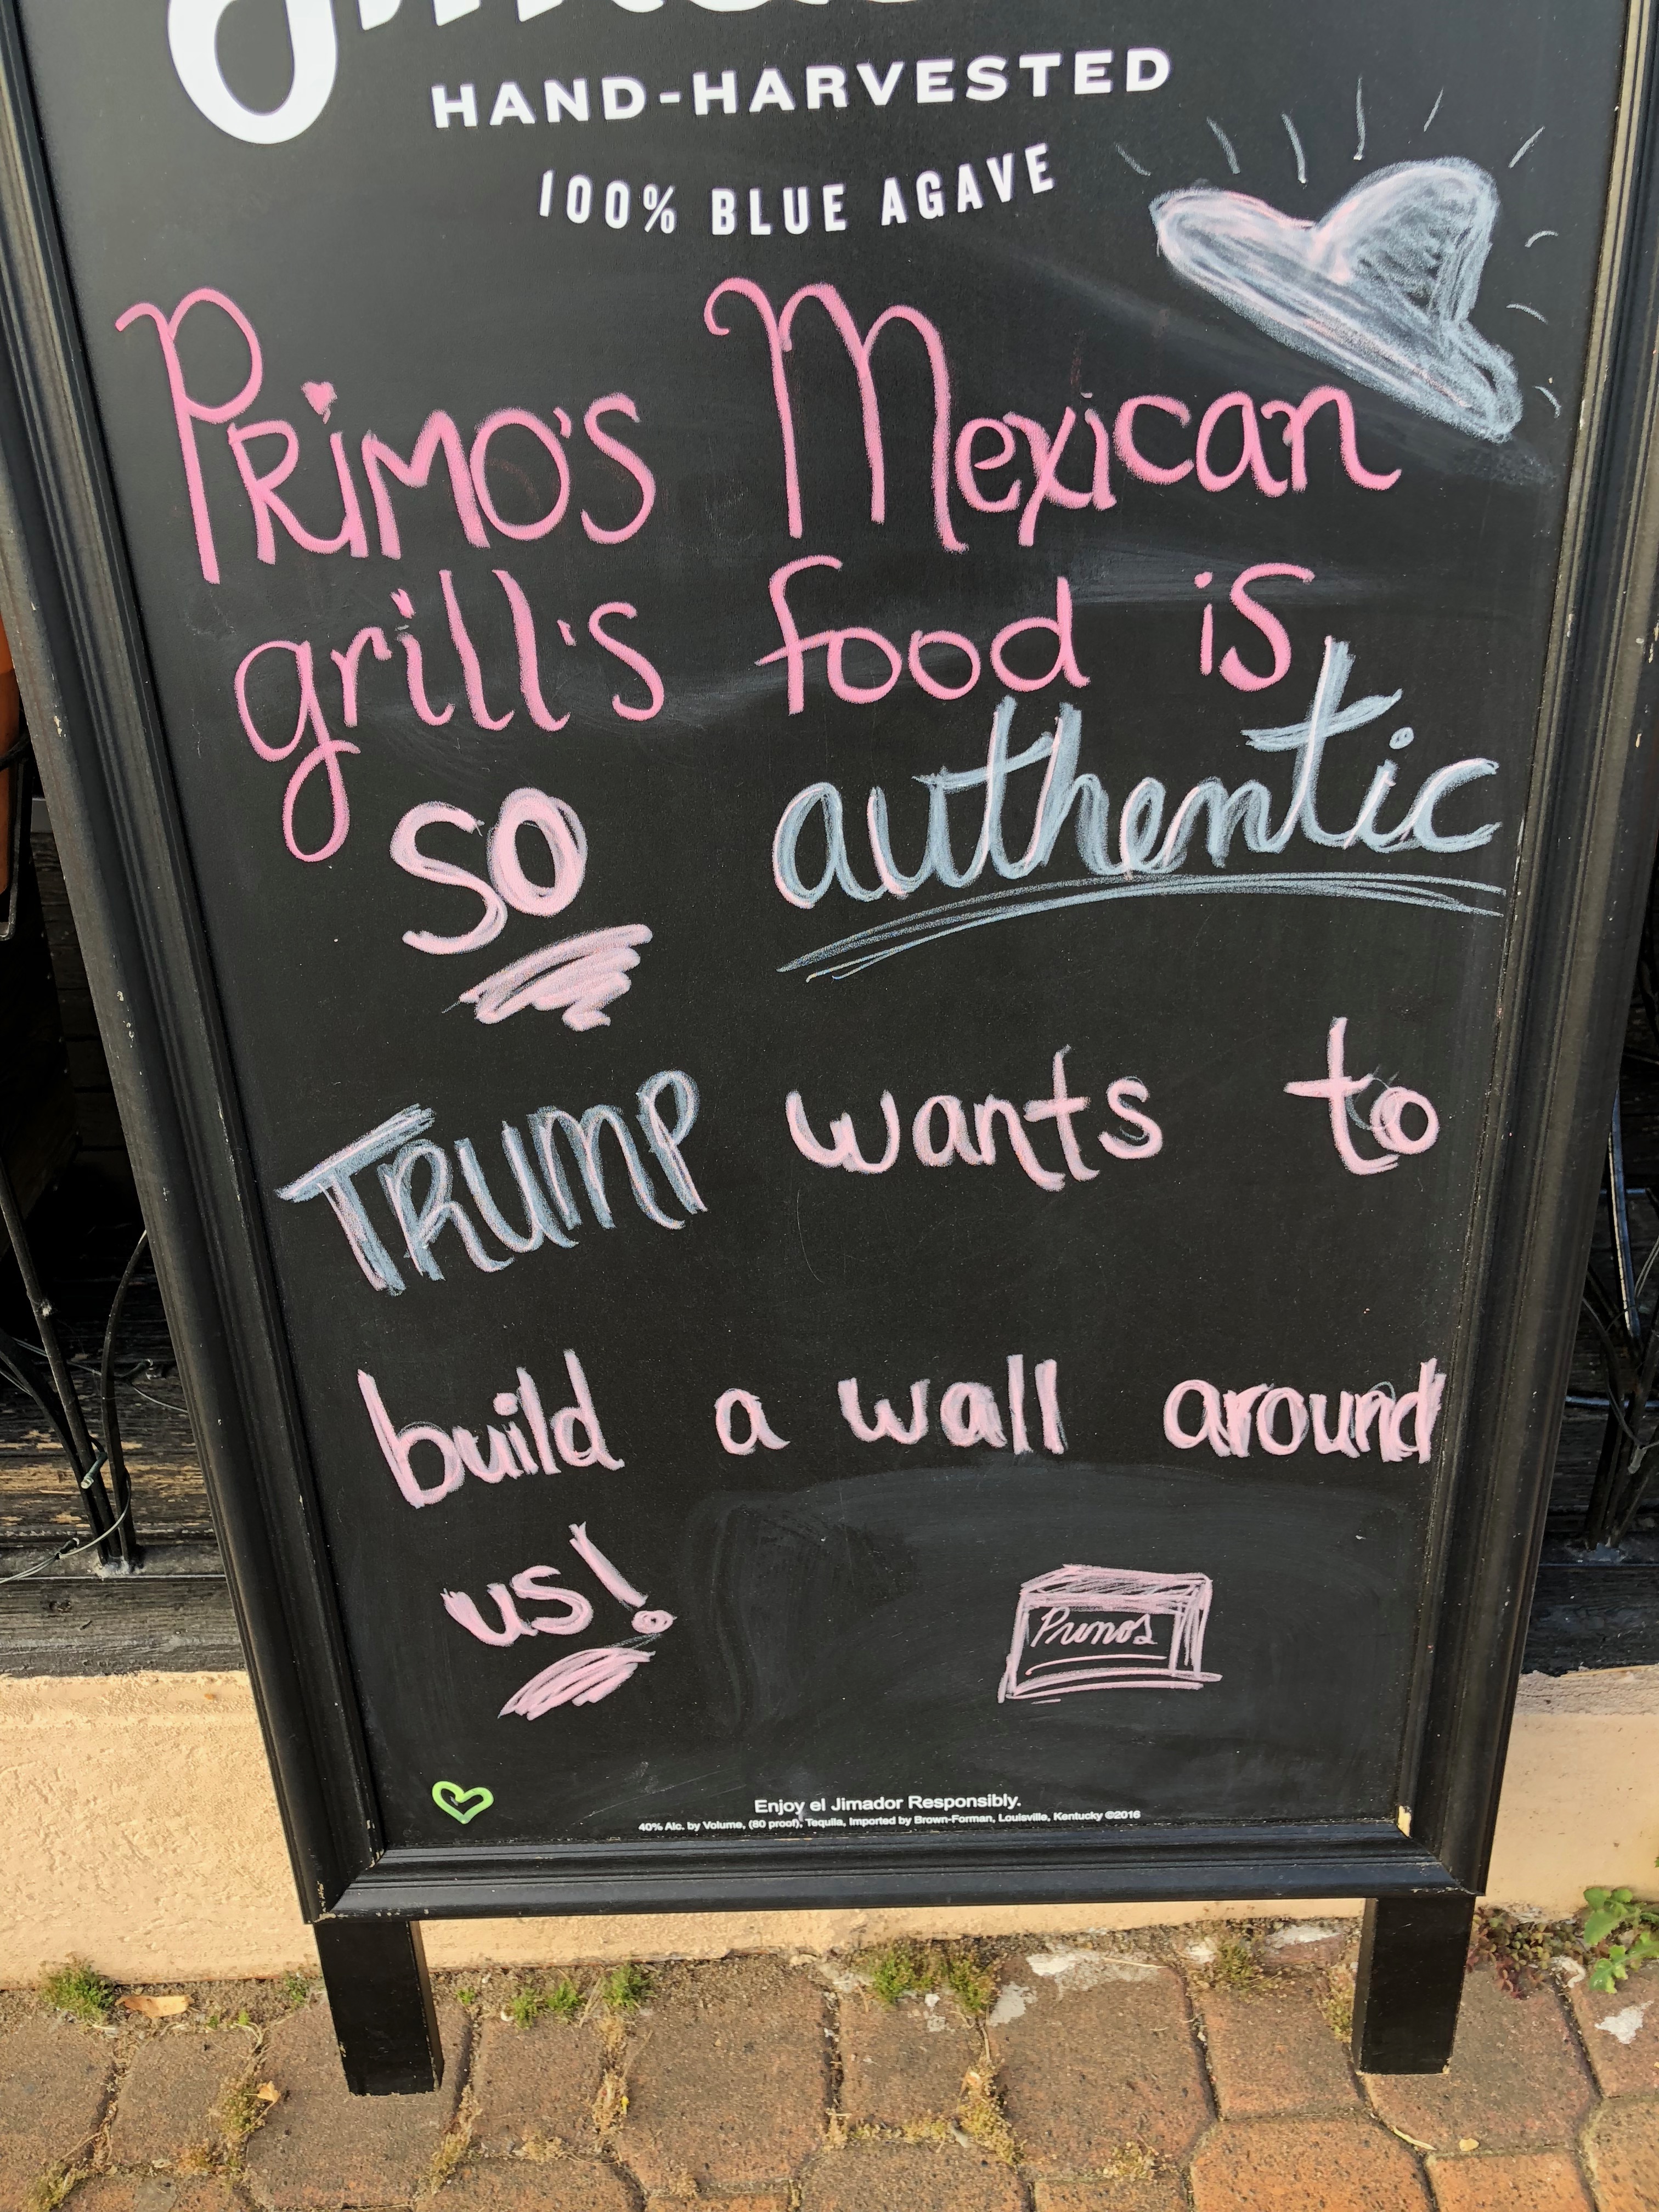 HAND-HARVESTED
100% BLUE AGAVE
PRiMO'S Mexican
grill's food is
SO authentic
TRUMP wants to
build a wall around
us!
Primos
Enjoy el Jimador Responsibly.
40% Alc. by Volume, (80 proof), Tequila, Imported by Brown-Forman, Louisville, Kentucky ©2016